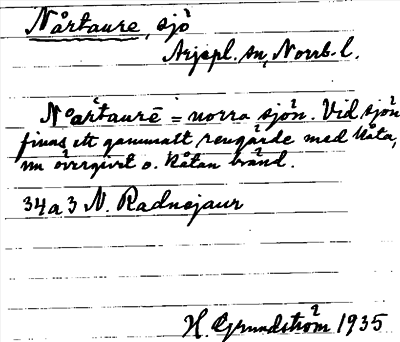 Nårtaure, sjö
Arjepl. sn, Norrb. l.
Nºartaurē = norra sjön. Vid sjön
finns ett gammalt rengärde med kåta,
nu övergivet o. kåtan bränd.
34a3 N. Radnejaur
H. Grundström 1935